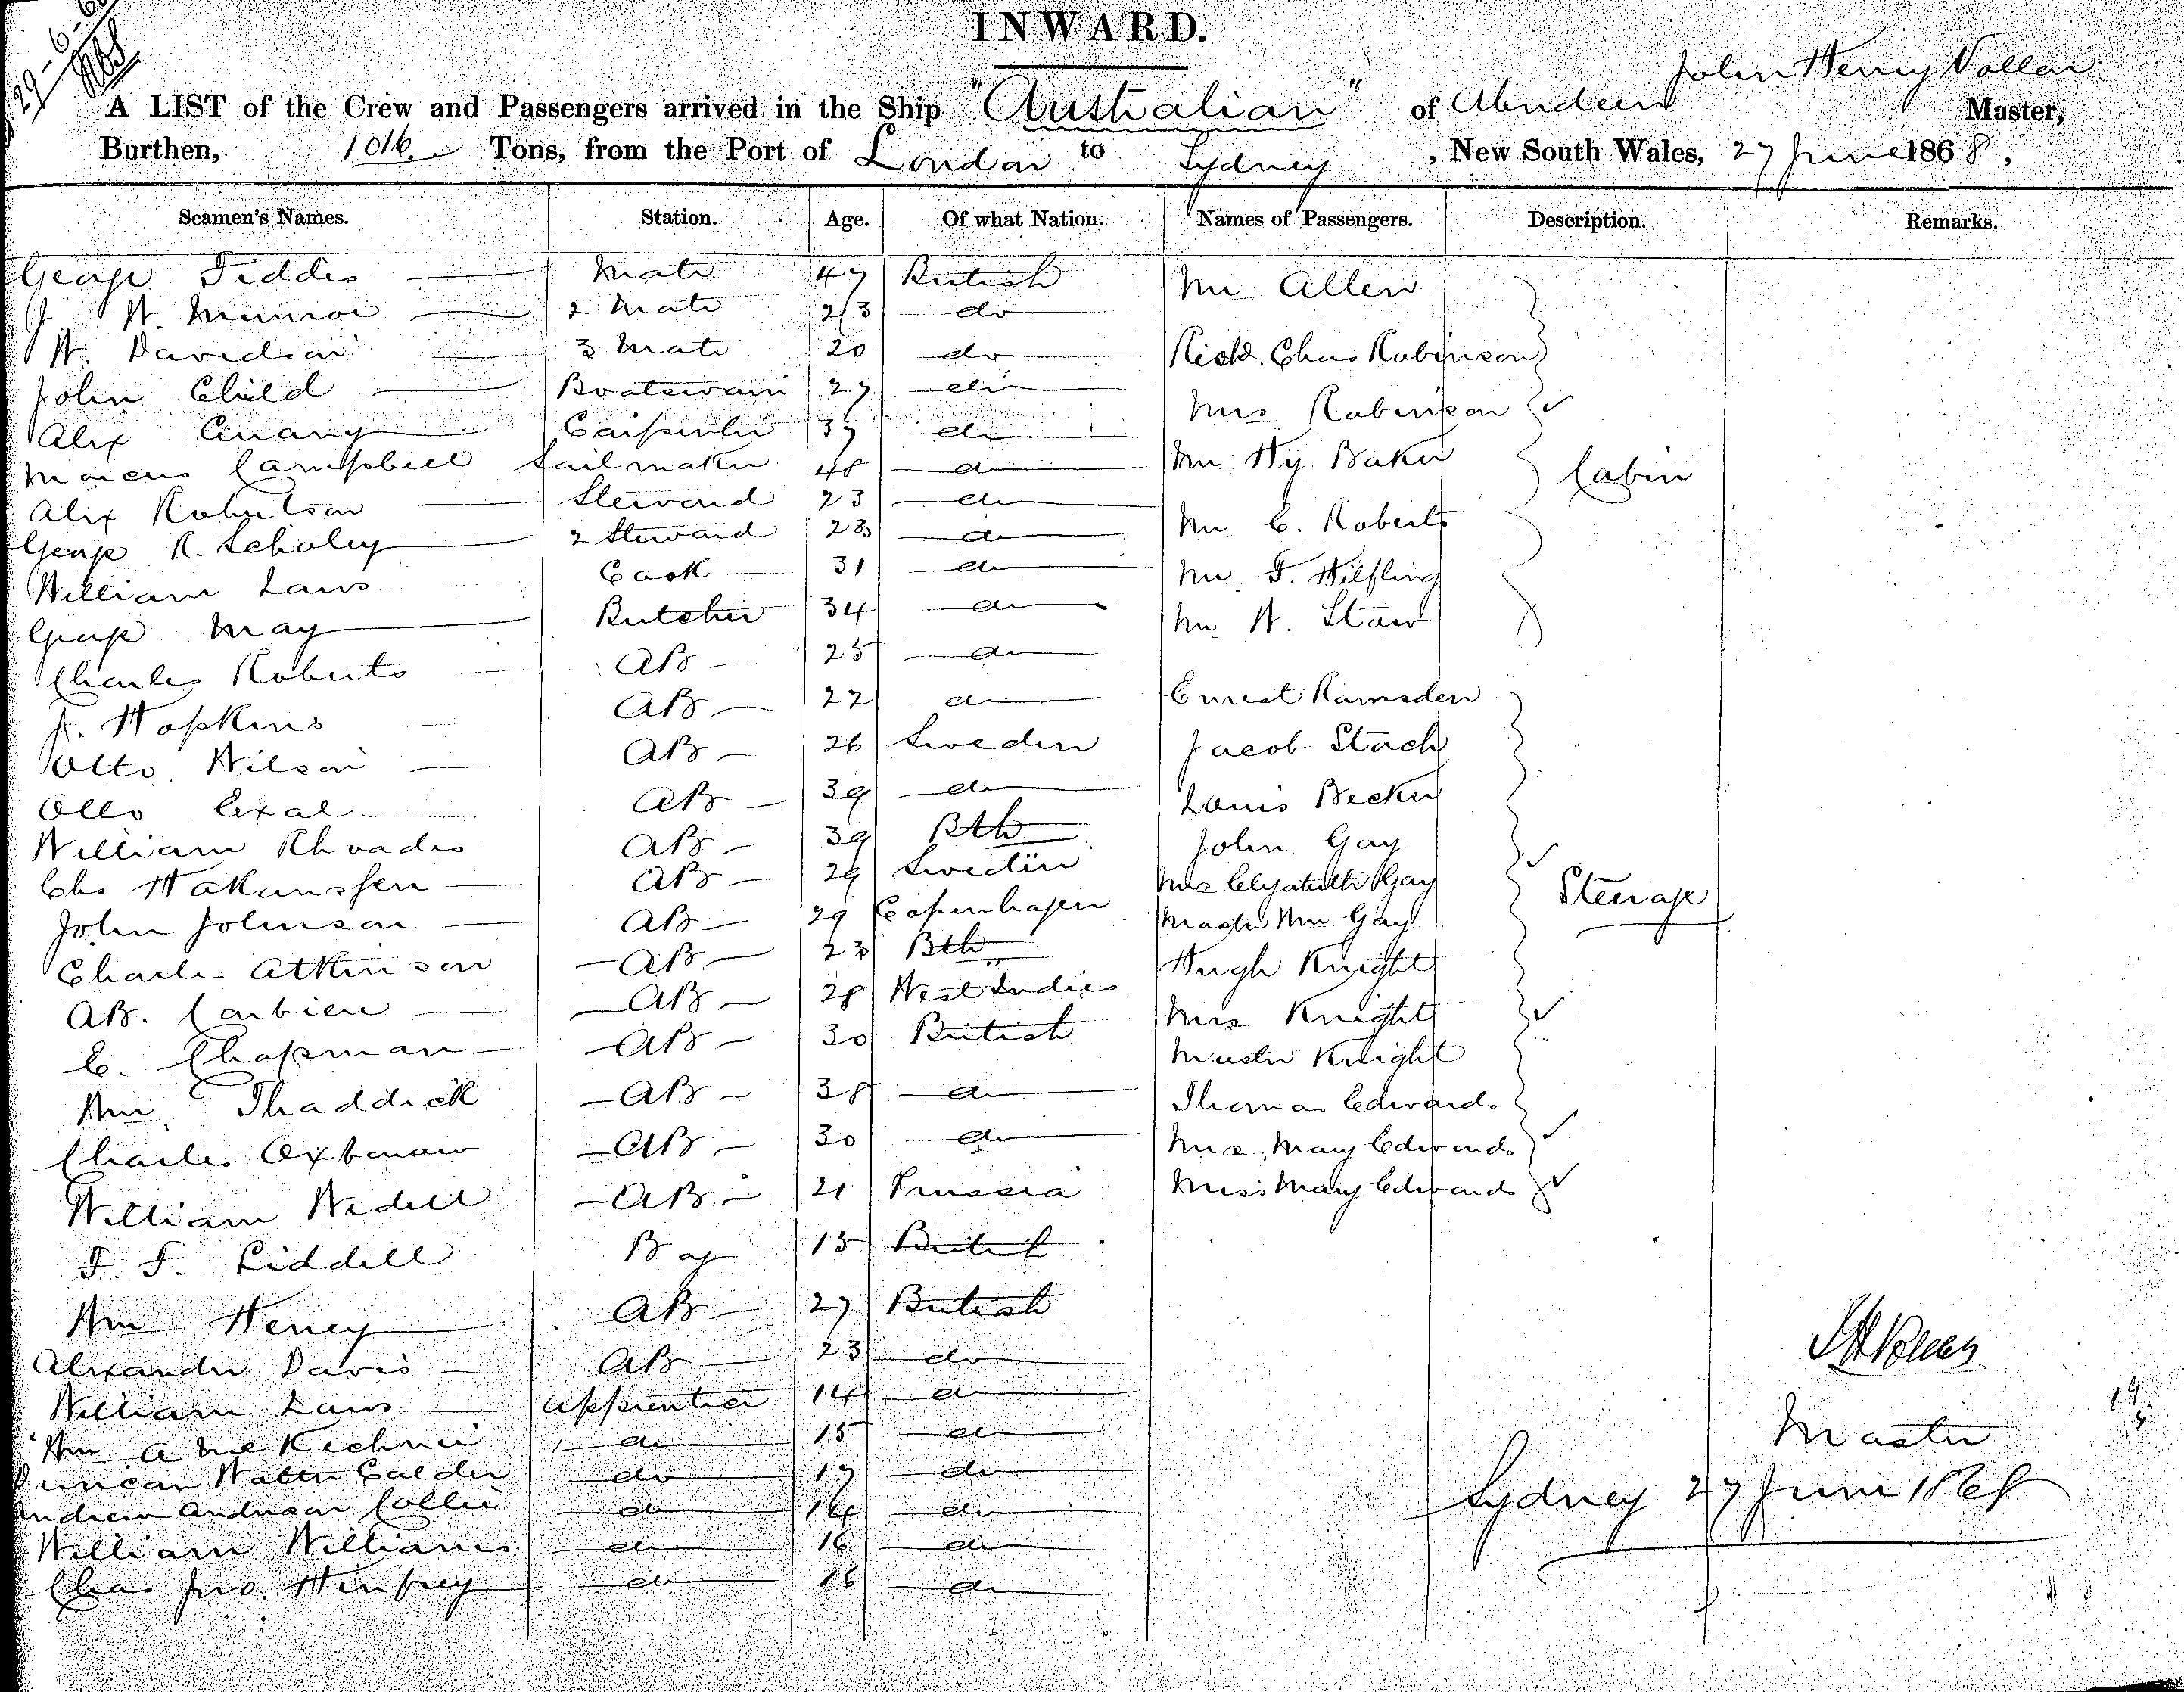 29-6-68
INWARD.
John Henry Vollar
A LIST of the Crew and Passengers arrived in the Ship "Australian" of Aberdeen Master,
Burthen, 1016 Tons, from the Port of London to Sydney, New South Wales, 27 June 1868,
Seamen's Names. Station. Age. Of what Nation. Names of Passengers. Description. Remarks.
George Fiddes Mate 47 British Mr Allen
J W. Munroe 2 Mate 23 do
W. Davidson 3 Mate 20 do Richd. Chas Robinson
John Child Boatswain 27 do Mrs Robinson
Alex Carpenter 37 do
Marcus Campbell Sailmaker 48 do Mr. Hy. Baker Cabin
Alex Robertson Steward 23 do
George R. Scholey 2 Steward 23 do Mr C. Roberts
William Laws Cook 31 do Mr. F. Wilfling
George May Butcher 34 do Mr W. Staw
Charles Roberts AB 25 do
J. Hopkins AB 22 do Ernest Ramsden
Otto Wilson AB 26 Sweden Jacob Stach
Otto Exal AB 39 do Louis Becker
William Rhoades AB 39 Bth John Gay
Chs Hakanssen AB 29 Sweden Mrs Elyabeth Gay Steerage
John Johnson AB 29 Copenhagen Master Wm Gay
Charles Atkinson AB 23 Bth Hugh Knight
AB. AB 28 West Indies Mrs Knight
C. Chapman AB 30 British Master Knight
Wm. Thaddick AB 38 do Thomas Edwards
Charles AB 30 do Mrs. Mary Edwards
William Wedell AB 21 Prussia Miss Mary Edwards
F. F. Liddell Boy 15 British
Wm Heney AB 27 British
Alexander Davis AB 23 do
William Laws Apprentice 14 do
Wm A McKechnie do 15 do
Duncan Walter Calder do 17 do
Andrew Anderson Collie do 14 do
William Williams do 16 do
Chas Jno. Henfrey do 16 do
JHVollar
Master
Sydney 27 June 1868